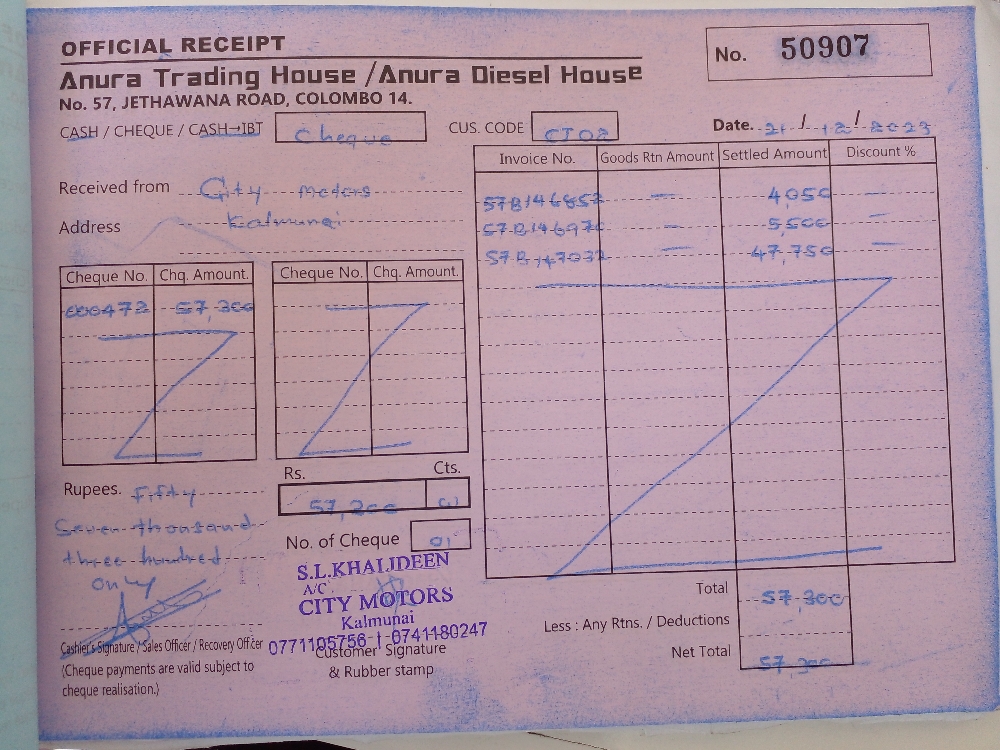 OFFICIAL RECEIPT
No. 50907
Anura Trading House / Anura Diesel House
No. 57, JETHAWANA ROAD, COLOMBO 14.
CASH / CHEQUE / CASH→IBT Cheque
CUS. CODE CT02
Date. 21/12/2023
Received from City motors
Address Kalmunai
Invoice No. Goods Rtn Amount Settled Amount Discount %
57B146852 — 4,050 —
5,500 —
47,750 —
Cheque No. Chq. Amount. Cheque No. Chq. Amount.
000472 57,300
Rupees. Fifty
Seven thousand
three hundred
only
Rs. Cts.
57,300
No. of Cheque 01
S.L.KHALIDEEN
A/C.
CITY MOTORS
Kalmunai
0771105756 - 0741180247
Cashier's Signature / Sales Officer / Recovery Officer
(Cheque payments are valid subject to
cheque realisation.)
Customer Signature
& Rubber stamp
Total 57,300
Less : Any Rtns. / Deductions
Net Total 57,300